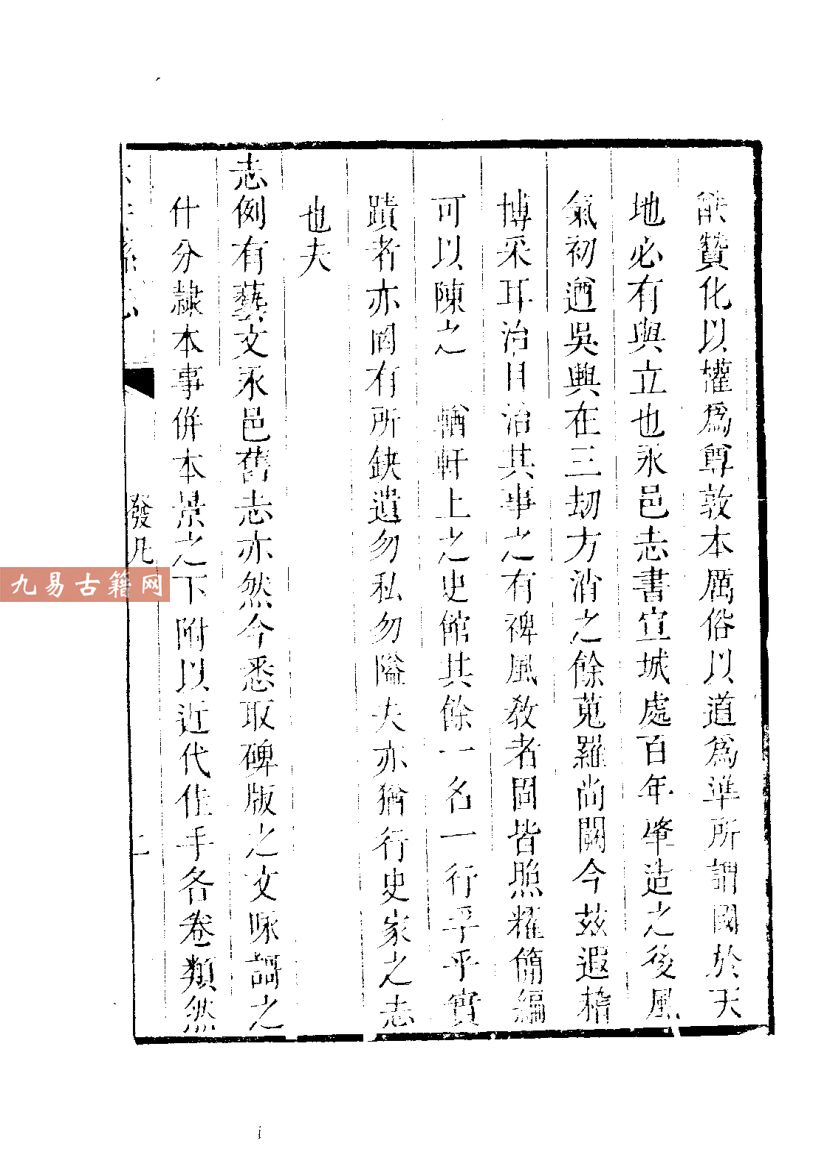 能贊化以權爲尊敦本厲俗以道爲準所謂國於天
地必有與立也永邑志書宣城處百年肇造之後風
氣初遒吳興在三刼方消之餘蒐羅尚闕今茲遐稽
博采耳治目治其事之有裨風教者固皆照耀簡編
可以陳之 輶軒上之史館其餘一名一行孚乎實
蹟者亦罔有所缺遺勿私勿隘夫亦猶行史家之志
也夫
志例有藝文永邑舊志亦然今悉取碑版之文咏謌之
什分隸本事併本景之下附以近代佳手各卷類然
發凡
二
九易古籍网
i